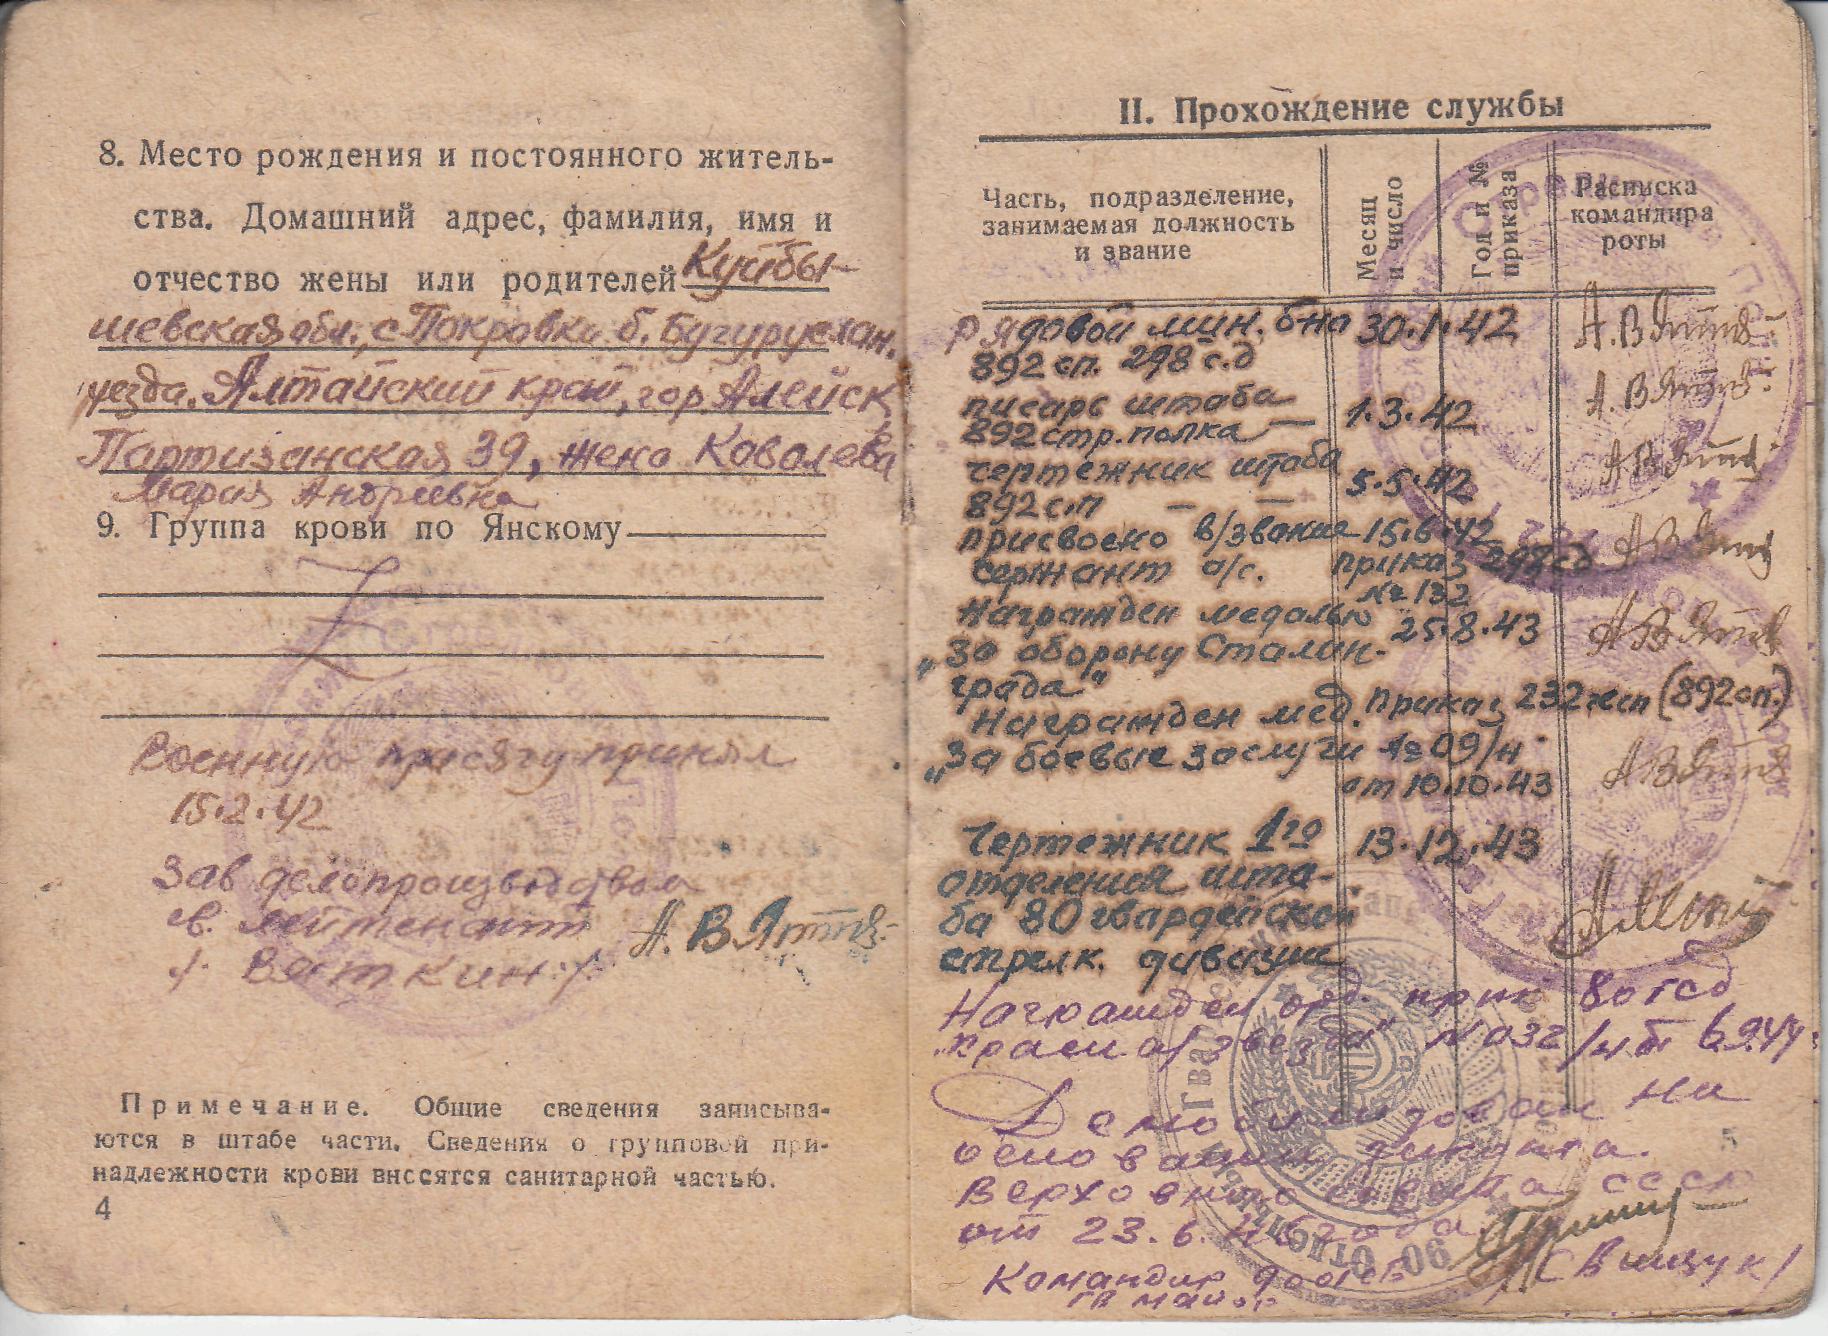 8. Место рождения и постоянного житель-
ства. Домашний адрес, фамилия, имя и
отчество жены или родителей Куйбы-
шевская обл., с Покровка б. Бугуруслан.
уезда. Алтайский край, гор Алейск
Партизанская 39, жена Ковалева
Мария Андреевна
9. Группа крови по Янскому
Военную присягу принял
15.2.42
Зав делопроизводством
лейтенант
/Вяткин/
А. Вятк
Примечание. Общие сведения записыва-
ются в штабе части. Сведения о групповой при-
надлежности крови вносятся санитарной частью.
4
II. Прохождение службы
Часть, подразделение,
занимаемая должность
и звание
Месяц
и число
Год и №
приказа
Расписка
командира
роты
рядовой мин. б-на 30.1.42
892 сп. 298 с.д
писарь штаба 1.3.42
892 стр. полка —
чертежник штаба 5.5.42
892 с.п — —
присвоено в/звание 15.6.42
сержант а/с. приказ 298 сд
№ 132
Награжден медалью 25.8.43
„За оборону Сталин-
града"
Награжден мед. приказ 232 гсп (892 сп.)
„За боевые заслуги № 09/н
от 10.10.43
Чертежник 1го 13.12.43
отделения шта-
ба 80 гвардейской
стрелк. дивизии
Награжден орд. прик 80 гсд
„Красн а/ звезда" № 032/н от 6.9.44
Демобилизован на
основании
Верховного совета СССР
от 23.6.45 года.
Командир
гв майор
(Вищук/